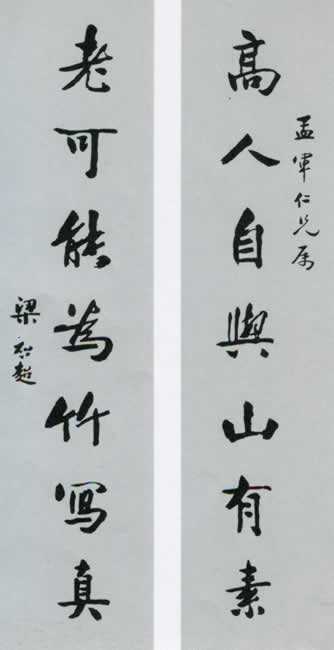 高人自與山有素
孟軍仁兄属
老可能為竹寫真
梁啟超